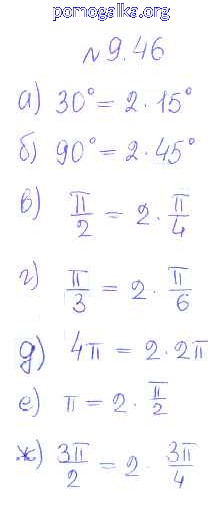 pomogalka.org
№9.46
а) 30° = 2·15°
б) 90° = 2·45°
в) π/2 = 2·π/4
г) π/3 = 2·π/6
д) 4π = 2·2π
е) π = 2·π/2
ж) 3π/2 = 2·3π/4